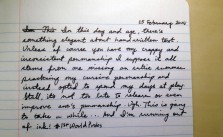 23 February 2010
In this day and age, there's
something elegant about hand written text.
Unless of course you have my crappy and
inconsistent penmanship. I suppose it adds
from one missing an entire summer
practicing my cursive penmanship and
instead opted to spend my days at play
Still, it's not too late to relearn or even
improve one's penmanship. Ugh. This is going
to take a while... And I'm running out
of ink!